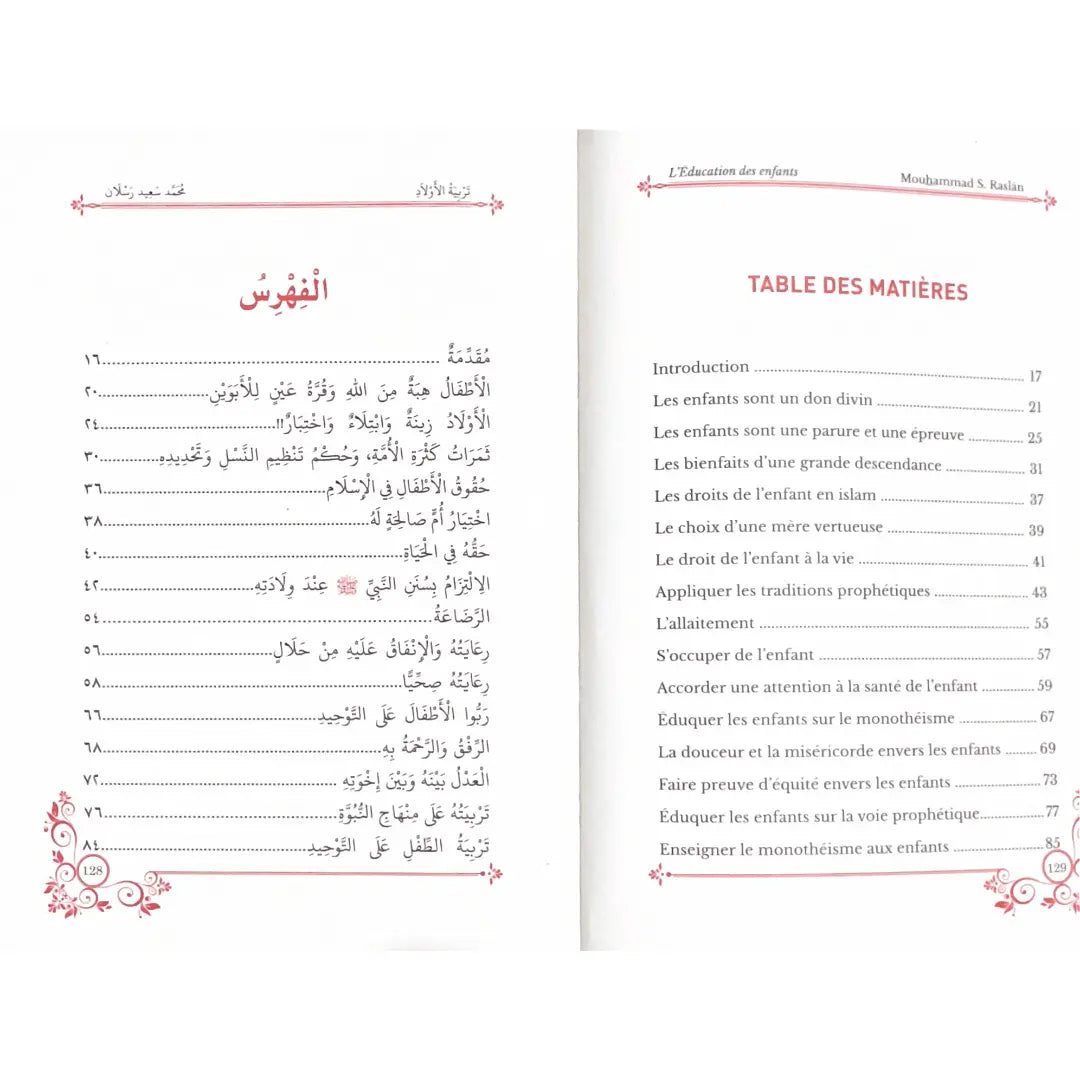 تَرْبِيَةُ الأَوْلَادِ
مُحَمَّد سَعِيد رَسْلَان
الْفِهْرِسُ
مُقَدِّمَةٌ ................................ ١٦
الْأَطْفَالُ هِبَةٌ مِنَ اللهِ وَقُرَّةُ عَيْنٍ لِلْأَبَوَيْنِ................................٢٠
الْأَوْلَادُ زِينَةٌ وَابْتِلَاءٌ وَاخْتِبَارٌ!!................................٢٤
ثَمَرَاتُ كَثْرَةِ الْأُمَّةِ، وَحُكْمُ تَنْظِيمِ النَّسْلِ وَتَحْدِيدِهِ................................٣٠
حُقُوقُ الْأَطْفَالِ فِي الْإِسْلَامِ................................٣٦
اخْتِيَارُ أُمٍّ صَالِحَةٍ لَهُ................................٣٨
حَقُّهُ فِي الْحَيَاةِ................................٤٠
الِالْتِزَامُ بِسُنَنِ النَّبِيِّ ﷺ عِنْدَ وِلَادَتِهِ................................٤٢
الرَّضَاعَةُ................................٥٤
رِعَايَتُهُ وَالْإِنْفَاقُ عَلَيْهِ مِنْ حَلَالٍ................................٥٦
رِعَايَتُهُ صِحِّيًّا................................٥٨
رَبُّوا الْأَطْفَالَ عَلَى التَّوْحِيدِ................................٦٦
الرِّفْقُ وَالرَّحْمَةُ بِهِ................................٦٨
الْعَدْلُ بَيْنَهُ وَبَيْنَ إِخْوَتِهِ ................................٧٢
تَرْبِيَتُهُ عَلَى مِنْهَاجِ النُّبُوَّةِ................................٧٦
تَرْبِيَةُ الطِّفْلِ عَلَى التَّوْحِيدِ................................٨٤
128
L'Éducation des enfants
Mouhammad S. Raslān
TABLE DES MATIÈRES
Introduction ................................ 17
Les enfants sont un don divin ................................ 21
Les enfants sont une parure et une épreuve ................ 25
Les bienfaits d'une grande descendance ................ 31
Les droits de l'enfant en islam ................................ 37
Le choix d'une mère vertueuse ................................ 39
Le droit de l'enfant à la vie ................................ 41
Appliquer les traditions prophétiques ................ 43
L'allaitement ................................ 55
S'occuper de l'enfant ................................ 57
Accorder une attention à la santé de l'enfant ............ 59
Éduquer les enfants sur le monothéisme ................ 67
La douceur et la miséricorde envers les enfants ......... 69
Faire preuve d'équité envers les enfants ................ 73
Éduquer les enfants sur la voie prophétique................ 77
Enseigner le monothéisme aux enfants ................ 85
129